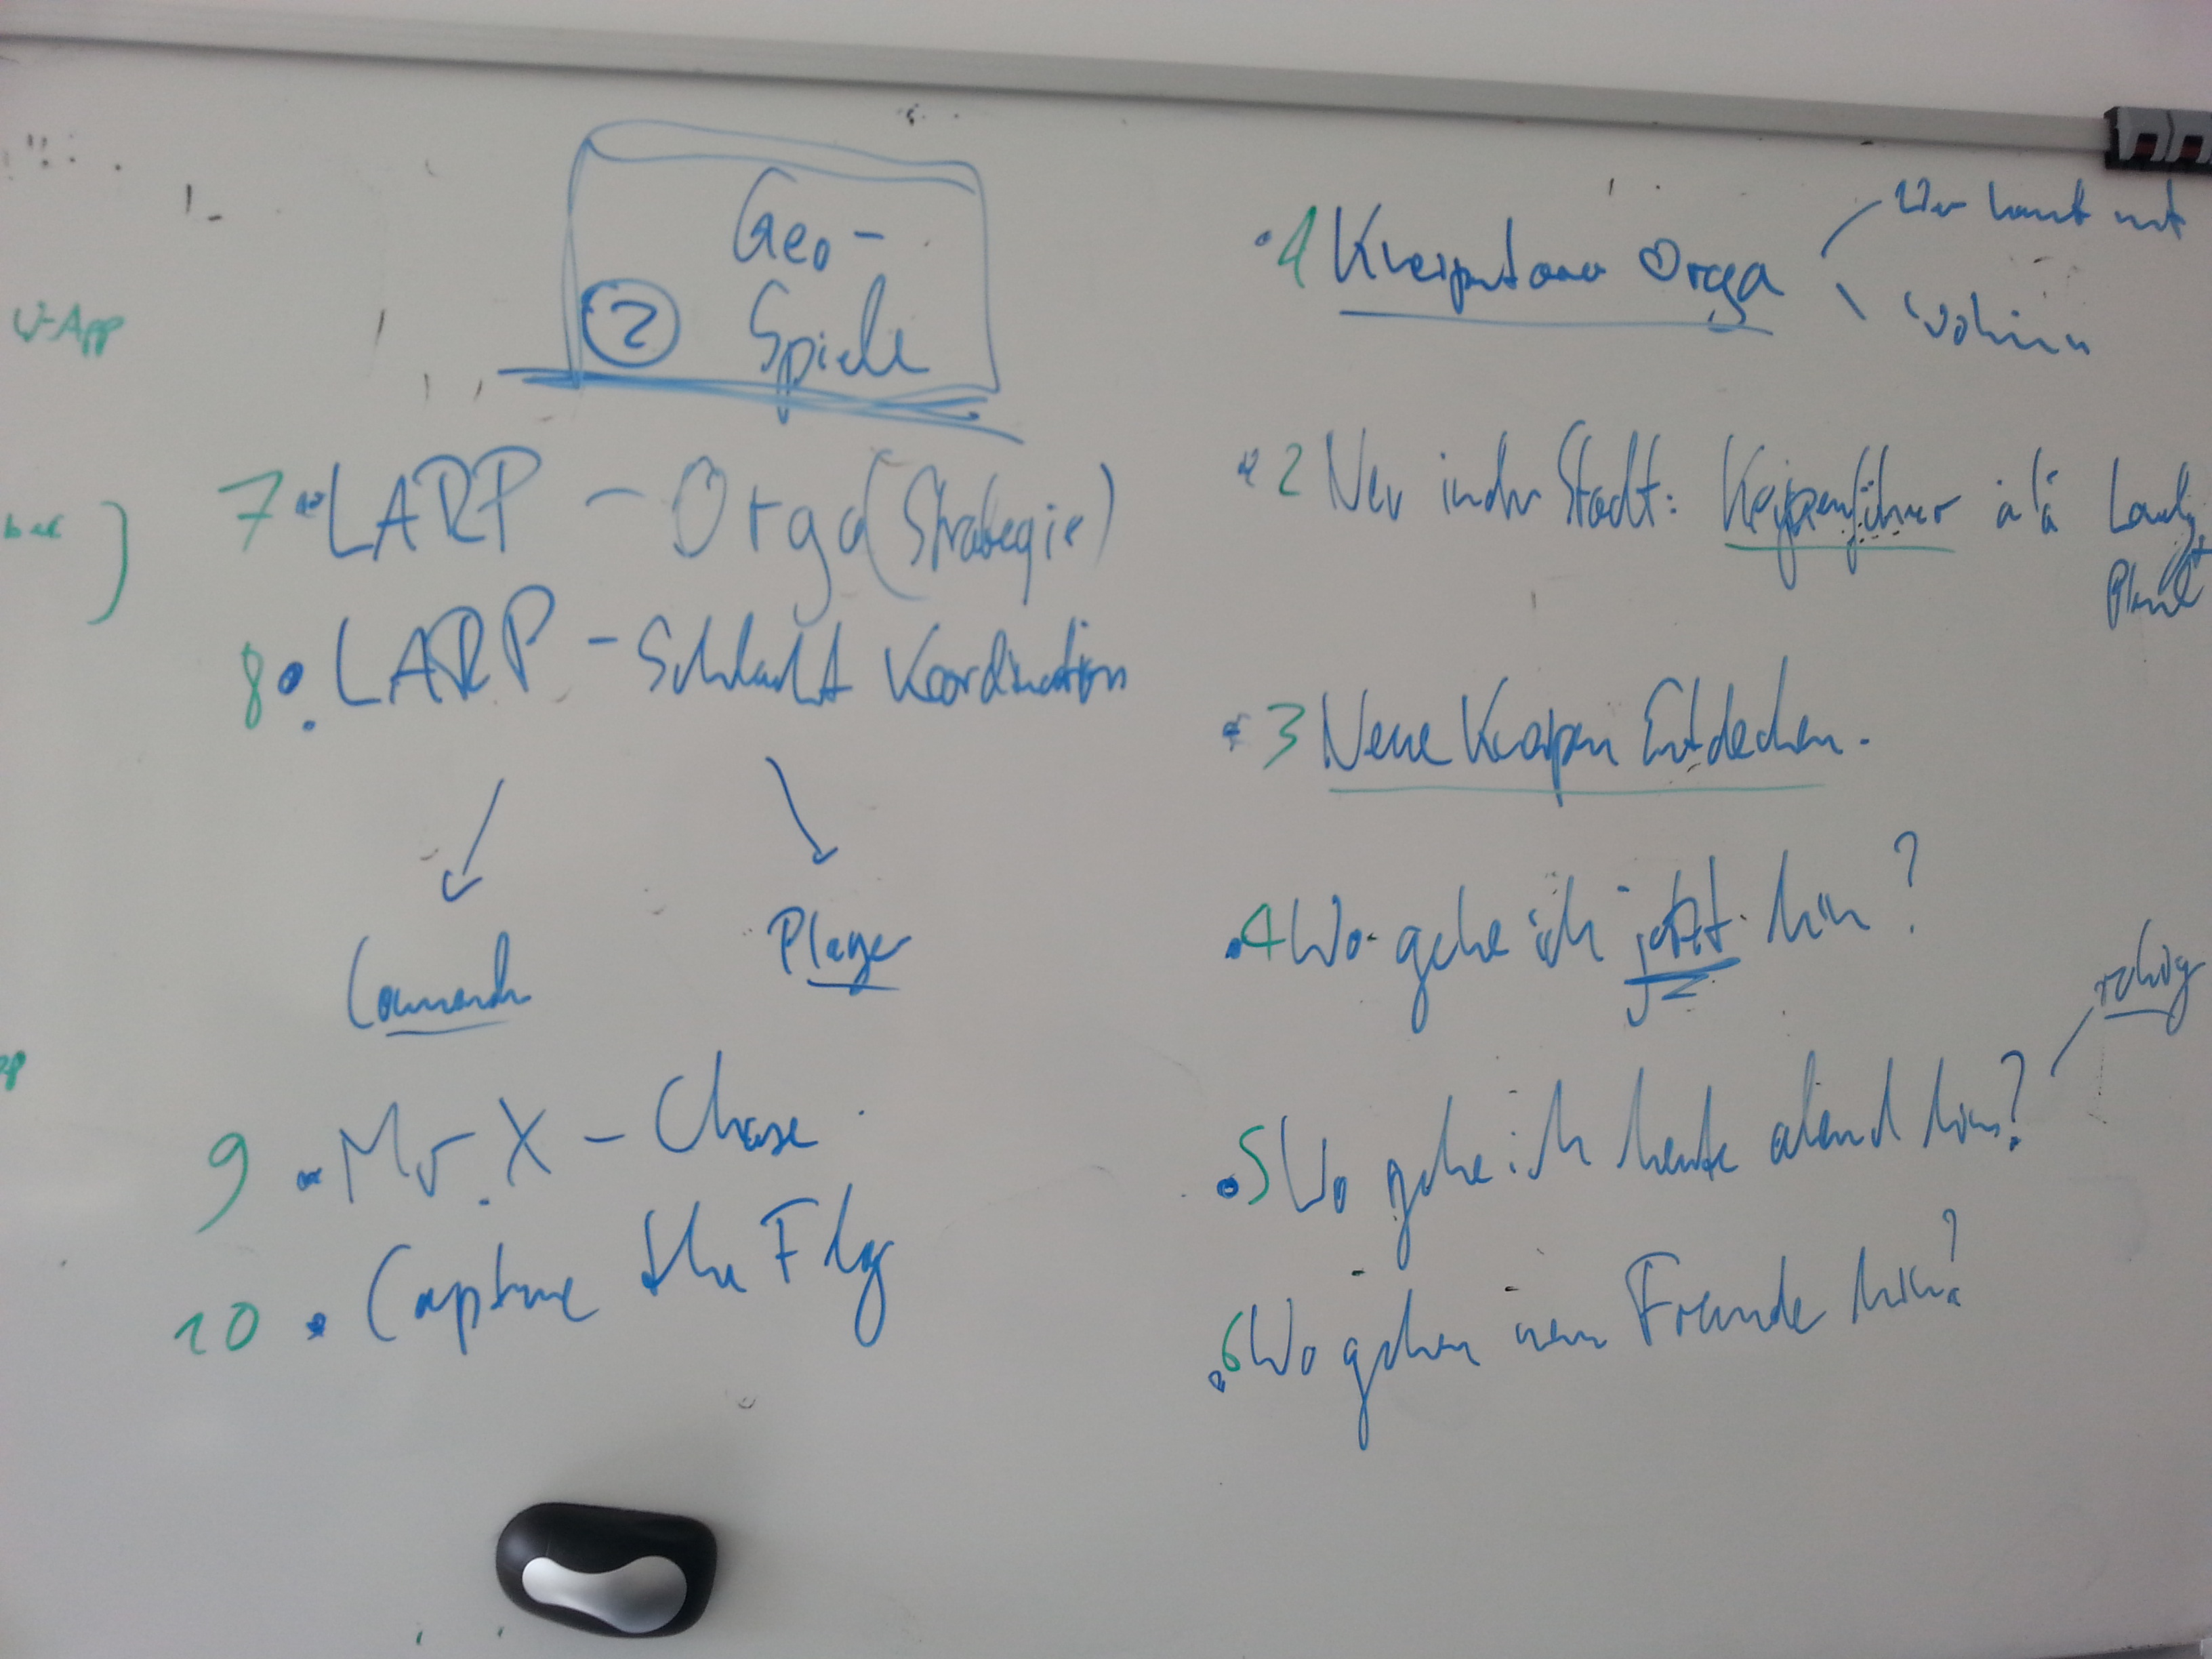 Geo-
② Spiele
7 LARP - Orga (Strategie)
8 LARP - Schlacht Koordination
Command
Player
9 Mr. X - Chase
10 Capture the Flag
1 Kneipentour Orga
Wer kommt mit
Wohin
2 Neu in der Stadt: Kneipenführer à la Lonely
Planet
3 Neue Kneipen Entdecken.
4 Wo gehe ich jetzt hin?
5 Wo gehe ich heute abend hin?
6 Wo gehen meine Freunde hin?
App